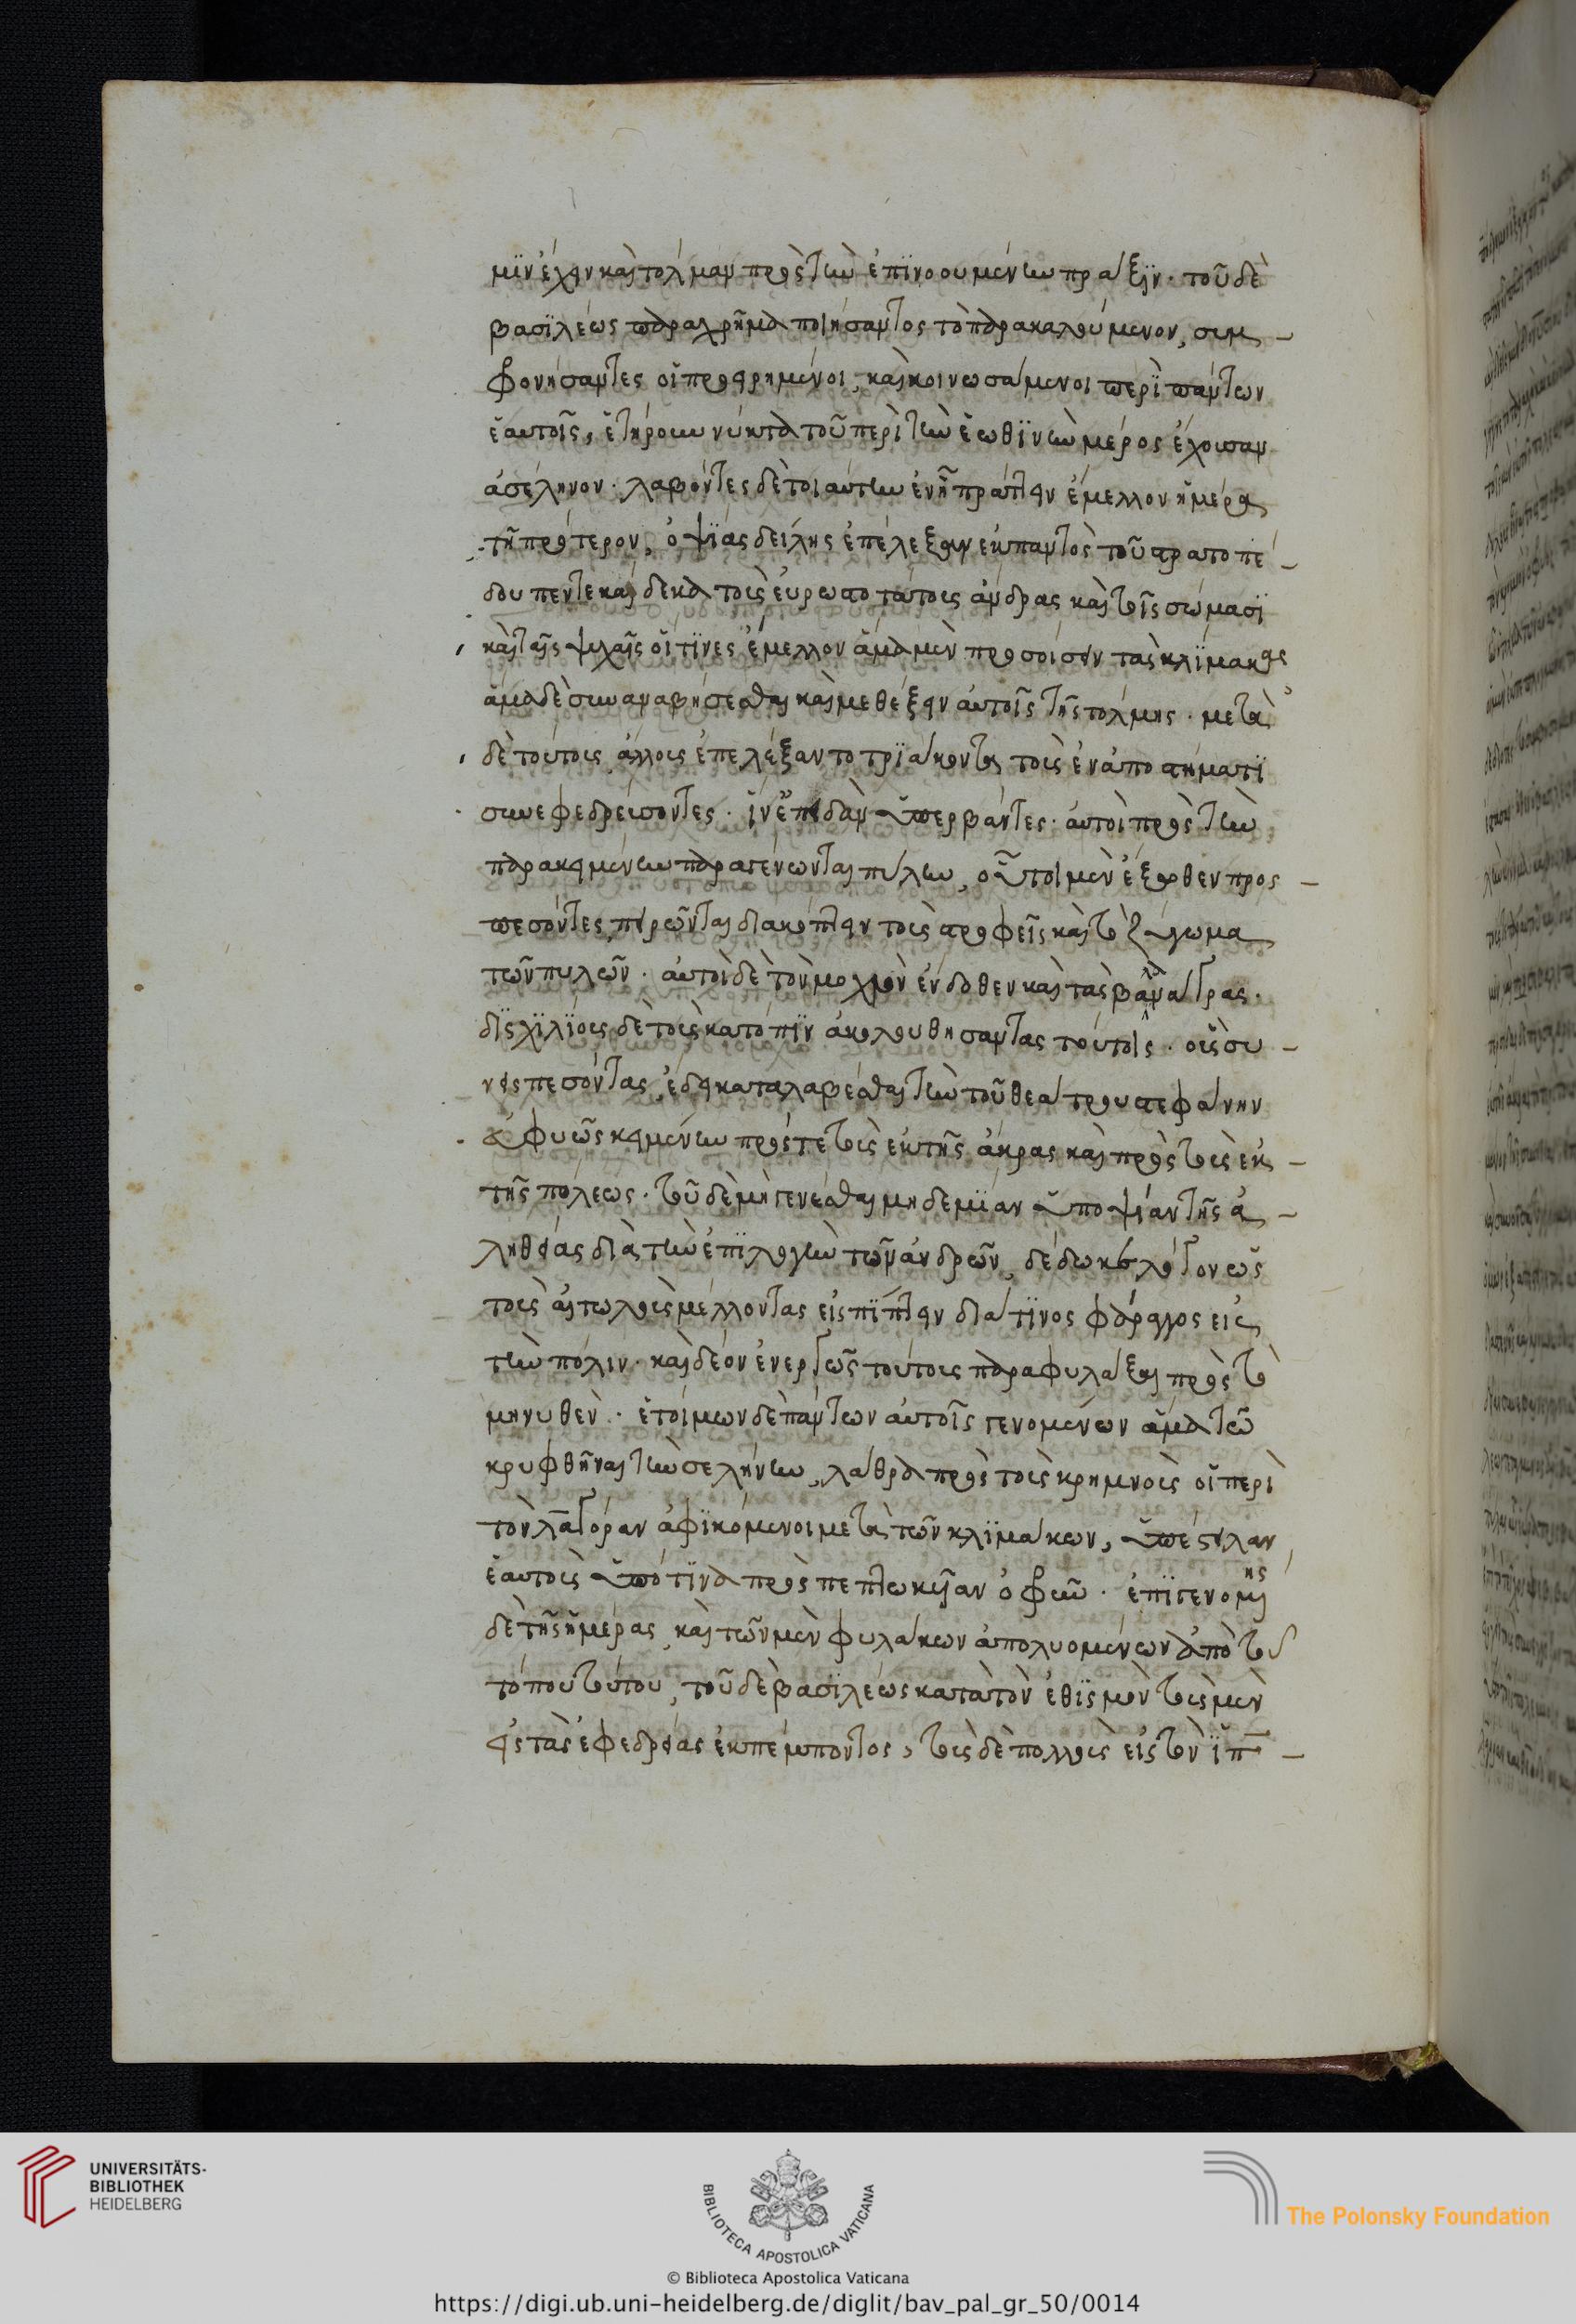 μιν ἔχειν καὶ τόλμαν πρὸς τὴν ἐπινοουμένην πρᾶξιν. τοῦ δὲ
βασιλέως παραχρῆμα ποιήσαντος τὸ παρακαλούμενον, συμ
φονήσαντες οἱ προειρημένοι, καὶ κοινωσάμενοι περὶ πάντων
ἑαυτοῖς, ἐτήρουν νύκτα τοῦ περὶ τὴν ἑωθινὴν μέρος ἔχουσαν
ἀσέληνον. λαβόντες δὲ τοιαύτην ἐν ᾗ πράττειν ἔμελλον ἡμέρα
τῇ πρότερον, ὀψίας δείλης ἐπέλεξαν ἐκ παντὸς τοῦ στρατοπέ
δου πεντεκαίδεκα τοὺς εὐρωστοτάτους ἄνδρας καὶ τοῖς σώμασι
καὶ ταῖς ψυχαῖς οἵτινες ἔμελλον ἅμα μὲν προσοίσειν τὰς κλίμακας
ἅμα δὲ συναναβήσεσθαι καὶ μεθέξειν αὐτοῖς τῆς τόλμης. μετὰ
δὲ τούτους ἄλλους ἐπελέξαντο τριάκοντα τοὺς ἐν ἀποστήματι
συνεφεδρεύσοντες. ἵν' ἐπειδὰν ὑπερβάντες αὐτοὶ πρὸς τὴν
παρακειμένην παραγένωνται πύλην, οὗτοι μὲν ἔξωθεν προς
πεσόντες πειρῶνται διακόπτειν τοὺς στροφεῖς καὶ τὸ ζύγωμα
τῶν πυλῶν. αὐτοὶ δὲ τὸν μοχλὸν ἔνδοθεν καὶ τὰς βαλανάγρας.
δισχιλίους δὲ τοὺς κατόπιν ἀκολουθήσαντας τούτοις. οὓς συ
νεισπεσόντας ἔδει καταλαβέσθαι τὴν τοῦ θεάτρου στεφάνην
εὐφυῶς κειμένην πρός τε τοὺς ἐκ τῆς ἄκρας καὶ πρὸς τοὺς ἐκ
τῆς πόλεως. τοῦ δὲ μὴ γενέσθαι μηδεμίαν ὑποψίαν τῆς ἀ
ληθείας διὰ τὴν ἐπιλογὴν τῶν ἀνδρῶν, δέδωκε λόγον ὡς
τοὺς αἰτωλοὺς μέλλοντας εἰσπίπτειν διά τινος φάραγγος εἰς
τὴν πόλιν. καὶ δέον ἐνεργῶς τούτους παραφυλάξαι πρὸς τὸ
μηνυθέν. ἑτοίμων δὲ πάντων αὐτοῖς γενομένων ἅμα τῷ
κρυφθῆναι τὴν σελήνην, λάθρα πρὸς τοὺς κρημνοὺς οἱ περὶ
τὸν λαγόραν ἀφικόμενοι μετὰ τῶν κλιμάκων, ὑπέστειλαν
ἑαυτοὺς ὑπό τινα προσπεπτωκυῖαν ὀφρῦν. ἐπιγενομένης
δὲ τῆς ἡμέρας καὶ τῶν μὲν φυλάκων ἀπολυομένων ἀπὸ τοῦ
τόπου τούτου, τοῦ δὲ βασιλέως κατὰ τὸν ἐθισμὸν τοὺς μὲν
εἰς τὰς ἐφεδρείας ἐκπέμποντος, τοὺς δὲ πολλοὺς εἰς τὸν ἱπ
UNIVERSITÄTS-
BIBLIOTHEK
HEIDELBERG
BIBLIOTECA APOSTOLICA VATICANA
The Polonsky Foundation
© Biblioteca Apostolica Vaticana
https://digi.ub.uni-heidelberg.de/diglit/bav_pal_gr_50/0014